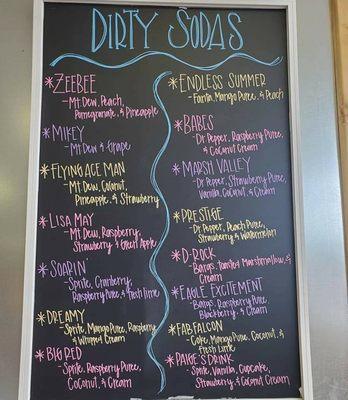 DIRTY SODAS
* ZEEBEE
- Mt Dew, Peach,
Pomegranate, & Pineapple
* MIKEY
- Mt Dew & Grape
* FLYING ACE MAN
- Mt Dew, Coconut,
Pineapple, & Strawberry
* LISA MAY
- Mt Dew, Raspberry,
Strawberry & Green Apple
* SOARIN'
- Sprite, Cranberry,
Raspberry Puree, & Fresh lime
* DREAMY
- Sprite, Mango Puree, Raspberry
& Whipped Cream
* BIG RED
- Sprite, Raspberry Puree,
Coconut, & Cream
* ENDLESS SUMMER
- Fanta, Mango Puree, & Peach
* BABES
- Dr Pepper, Raspberry Puree,
& Coconut Cream
* MARSH VALLEY
- Dr Pepper, Strawberry Puree,
Vanilla, Coconut, & Cream
* PRESTIGE
- Dr Pepper, Peach Puree,
Strawberry & Watermelon
* D-ROCK
- Barqs, Toasted Marshmallow, &
Cream
* EAGLE EXCITEMENT
- Barqs, Raspberry Puree,
Blackberry, & Cream
* FABFALCON
- Coke, Mango Puree, Coconut, &
Fresh Lime
* PAIGE'S DRINK
- Sprite, Vanilla, Cupcake,
Strawberry, & Coconut Cream